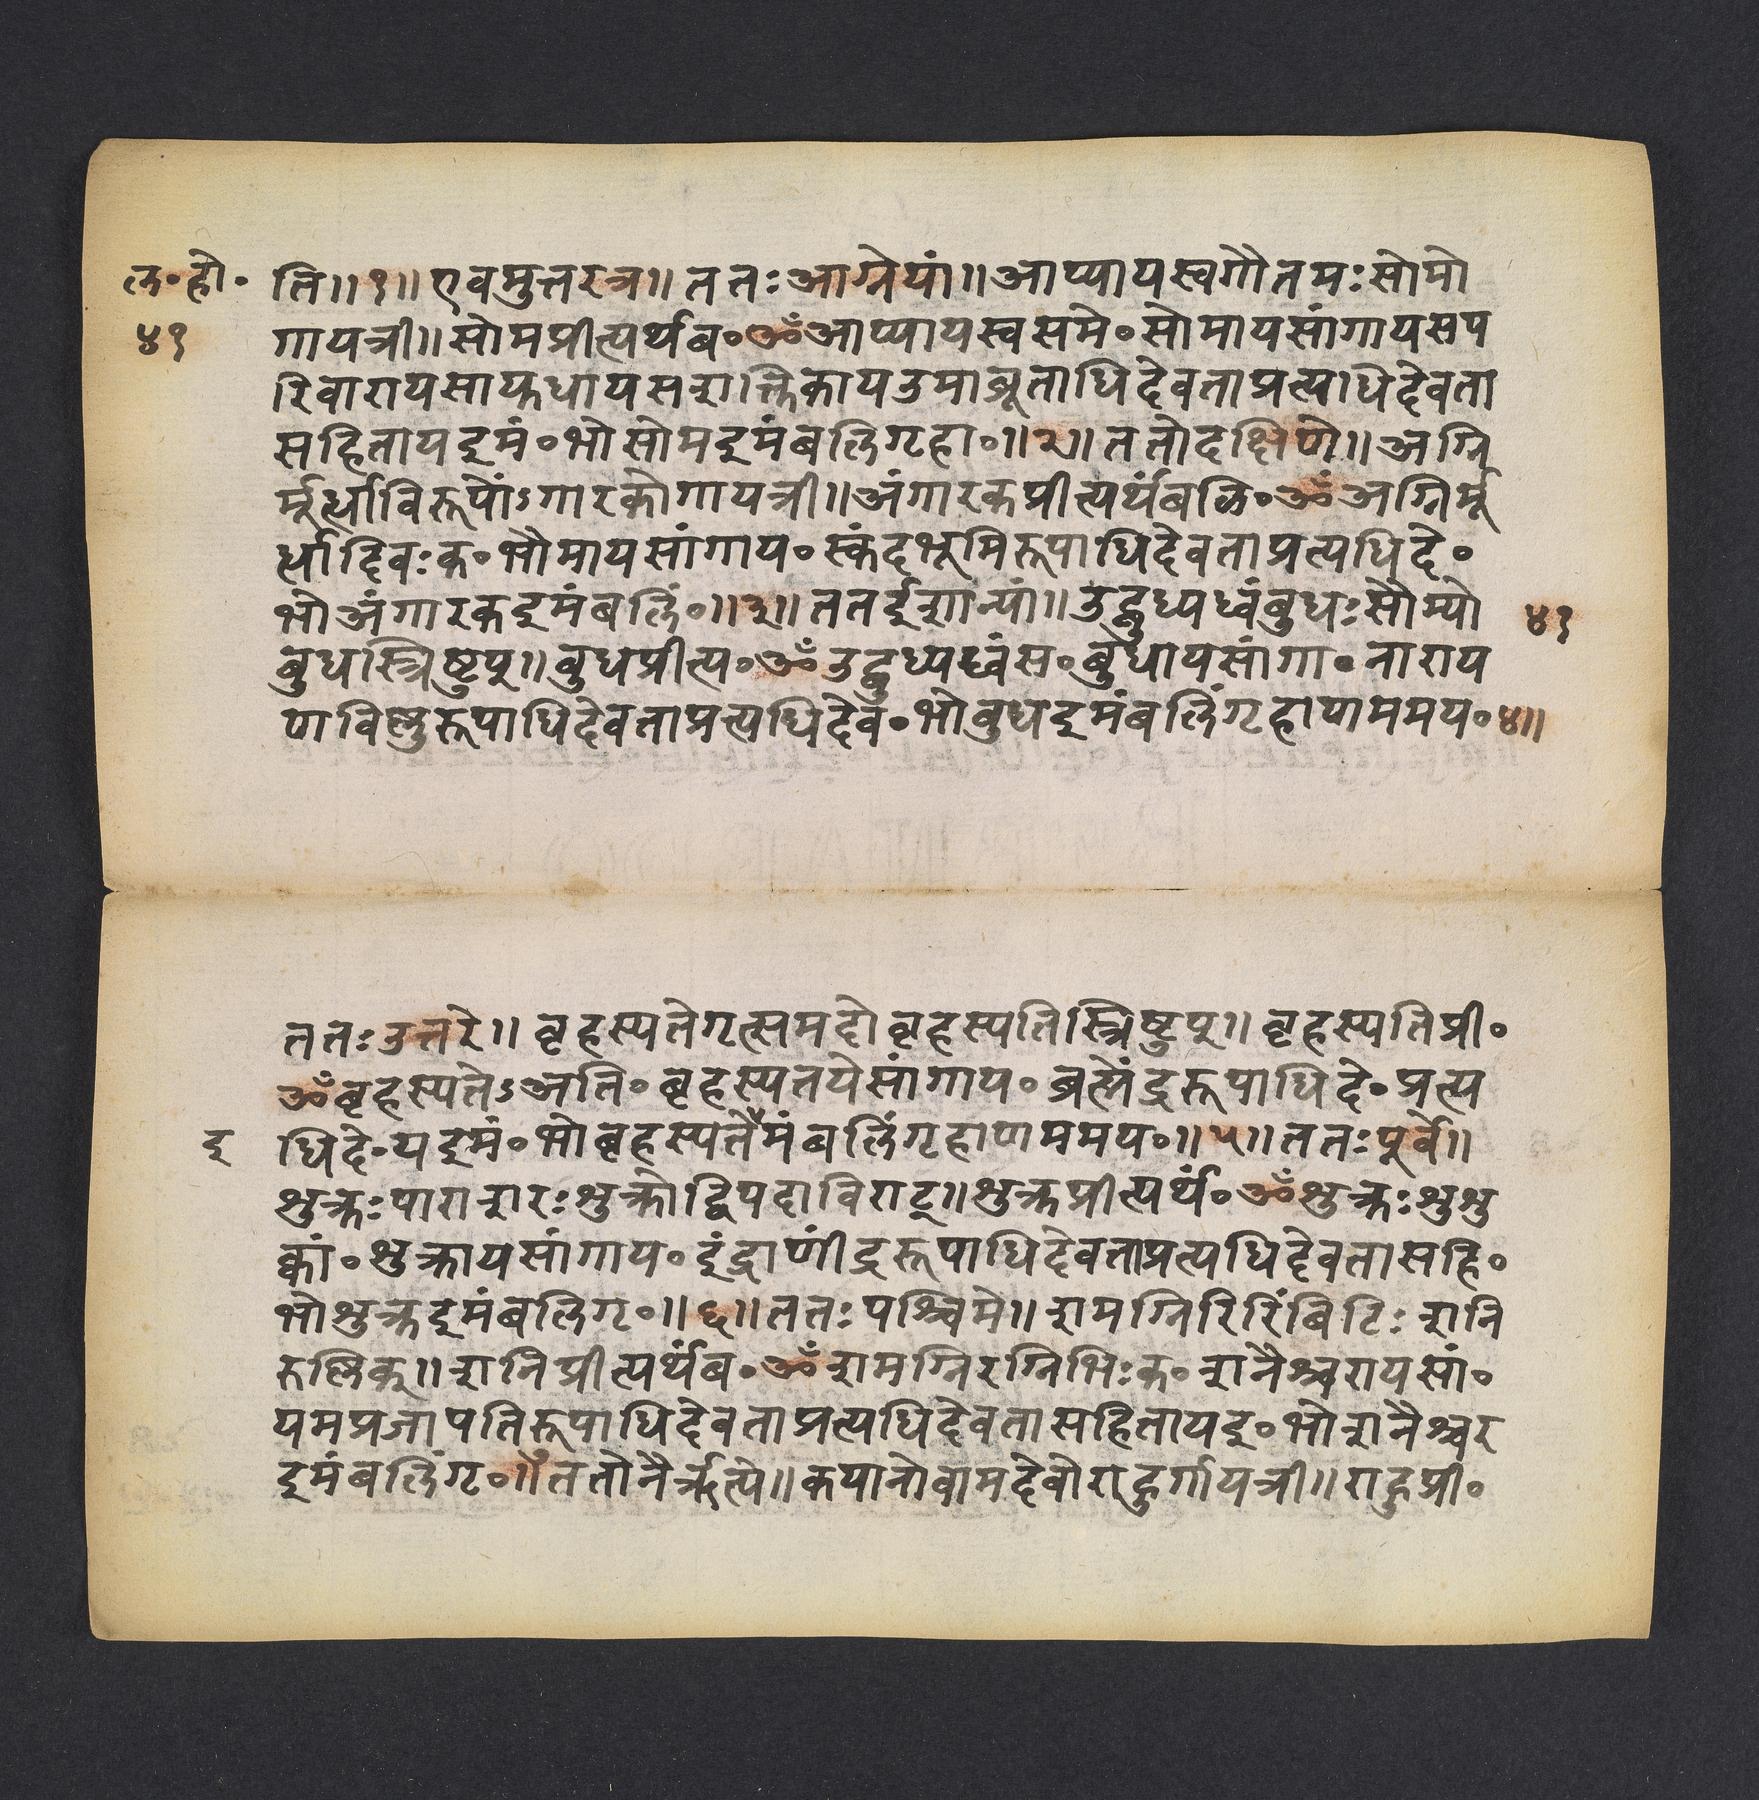 ल॰हो॰ ति॥१॥एवमुत्तरत्र॥ततःआग्नेयां॥आप्यायस्वगौतमःसोमो
४१ गायत्री॥सोमप्रीत्यर्थंब॰ॐआप्यायस्वसमे॰सोमायसांगायसप
रिवारायसायुधायसशक्तिकायउमाब्रूताधिदेवताप्रत्याधिदेवता
सहितायइमं॰भोसोमइमंबलिंगृहा॰॥२॥ततोदक्षिणे॥अग्नि
र्मूर्धाविरूपोंऽगारकोगायत्री॥अंगारकप्रीत्यर्थंबळि॰ॐअग्निर्मू
र्धादिवःक॰भौमायसांगाय॰स्कंदभूमिरूपाधिदेवताप्रत्यधिदे॰
भोअंगारकइमंबलिं॰॥३॥ततईशान्यां॥उद्बुध्यध्वंबुधःसौम्यो ४१
बुधस्त्रिष्टुप्॥बुधप्रीत्य॰ॐउद्बुध्यध्वंस॰बुधायसांगा॰नाराय
णविष्णुरूपाधिदेवताप्रत्यधिदेव॰भोबुधइमंबलिंगृहाणममय॰४॥
ततःउत्तरे॥बृहस्पतेगृत्समदोबृहस्पतिस्त्रिष्टुप्॥बृहस्पतिप्री॰
ॐबृहस्पतेऽअति॰बृहस्पतयेसांगाय॰ब्रह्मेंद्ररूपाधिदे॰प्रत्य
इ धिदे॰यइमं॰भोबृहस्पतैमंबलिंगृहाणममय॰॥५॥ततःपूर्वे॥
शुक्रःपाराशरःशुक्रोद्विपदाविराट्॥शुक्रप्रीत्यर्थं॰ॐशुक्रःशुशु
क्वां॰शुक्रायसांगाय॰इंद्राणींद्ररूपाधिदेवताप्रत्यधिदेवतासहि॰
भोशुक्रइमंबलिंगृ॰॥६॥ततःपश्चिमे॥शमग्निरिरिंबिठिःशनि
रुष्णिक्॥शनिप्रीत्यर्थंब॰ॐशमग्निरग्निभिःक॰शनैश्चरायसां॰
यमप्रजापतिरूपाधिदेवताप्रत्यधिदेवतासहितायइ॰भोशनैश्चर
इमंबलिंगृ॰॥७ततोनैर्ऋत्ये॥कयानोवामदेवोराहुर्गायत्री॥राहुप्री॰